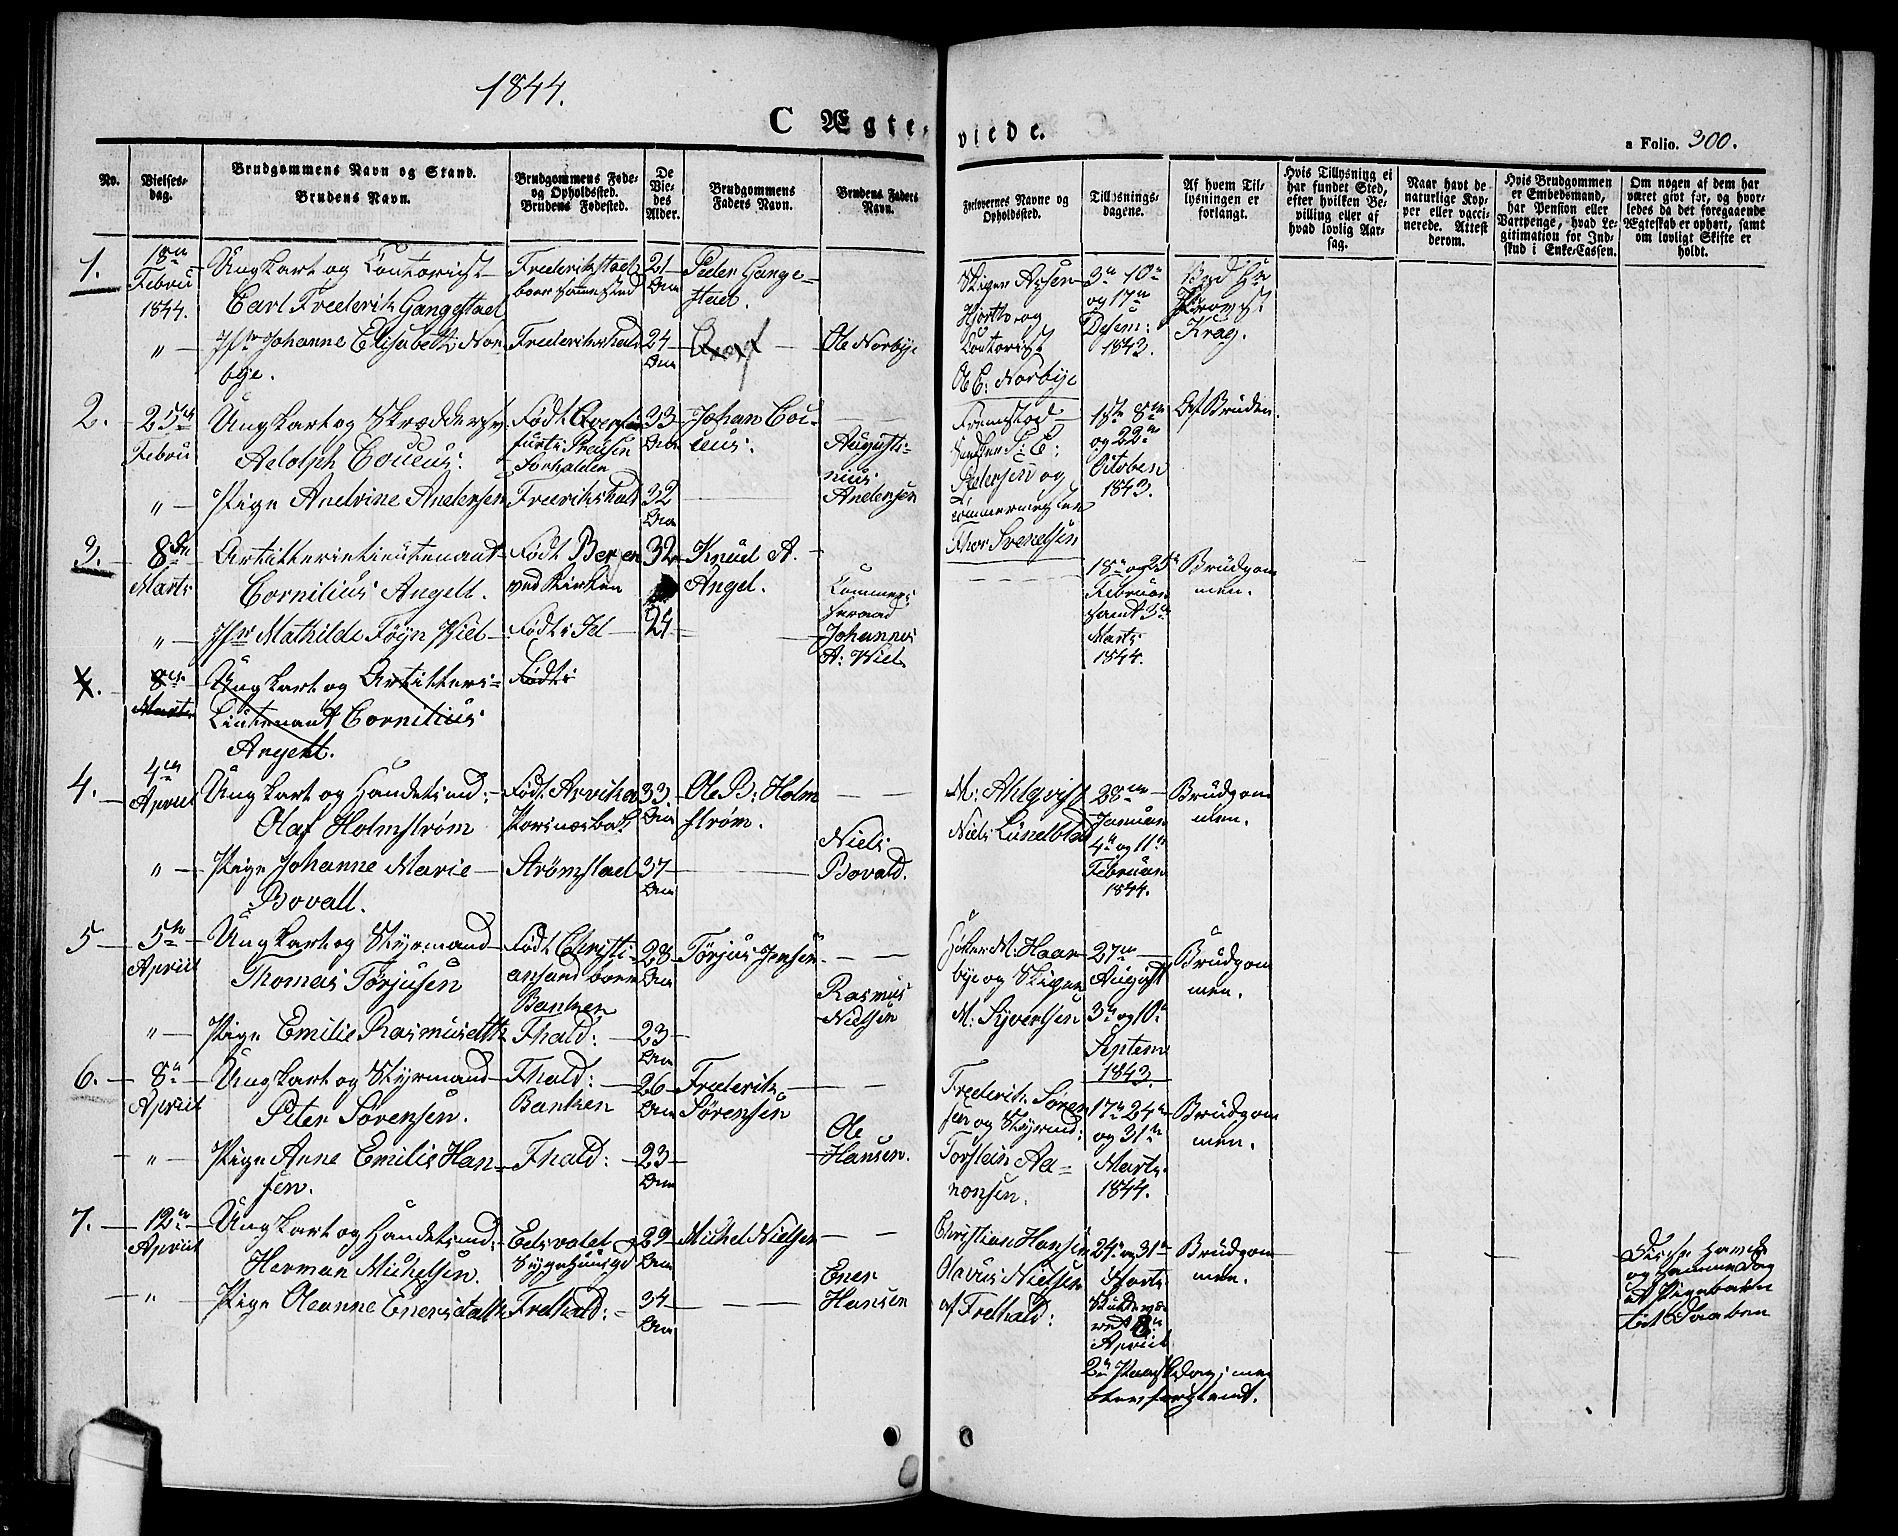 1844.
C Ægte-
viede.
a Folio. 300.
No.
Vielses-
dag.
Brudgommens Navn og Stand.
Brudens Navn.
Brudgommens Føde-
og Opholdssted.
Brudens Fødested.
De
Vie-
des
Alder.
Brudgommens
Faders Navn.
Brudens Faders
Navn.
Forlovernes Navne og
Opholdssted.
Tillysnings-
dagene.
Af hvem Til-
lysningen er
forlangt.
Hvis Tillysning ei
har fundet Sted,
efter hvilken Be-
villing eller af
hvad lovlig Aar-
sag.
Naar havt de
naturlige Kop-
per eller vacci-
nerede. Attest
derom.
Hvis Brudgommen
er Embedsmand,
har Pension eller
Vartpenge, hvad Le-
gitimation for Ind-
skud i Enke-Cassen.
Om nogen af dem har
været givt før, og hvor-
ledes da det foregaaende
Ægteskab er ophørt, samt
om lovligt Skifte er
holdt.
1.
18de
Febru
1844.
Ungkarl og Contorist
Carl Frederik Gangestad
Frederikstad
boer sammested
21
Aar
Peder Gange-
stad.
Skipper
Hjorth og
Contorist
O. C. Norbye
3de 10de
og 17de
Desem:
1843.
Ved Hr
Provst
Krag.
" Jfr Johanne Elisabeth Nor-
bye.
Frederikshald
24
Aar
Ole Norbye
2.
25de
Febru
Ungkarl og Skræddersv
Adolph Couéus.
Født
Preusen
33
Aar
Johan Cou-
éus.
1ste 8de
og 22de
Octoben
1843.
Af Bruden.
Pedersen og
Tømmermester
Thor Svendsen
" Pige Andrine Andersen
Frederikshald
32
Aar
Augusti-
nus
Andersen
3.
8de
Marts
Artillerielieutenant
Cornilius Angell.
Født Bergen
ved Kirken
32
Knud A.
Angel.
18de og 25de
Februar
samt 3de
Marts
1844.
Brudgom
men.
" Jfr Mathilde Føyn Wiel
Født i Id
24
Commers-
seraad
Johannes
A. Wiel
4.
8de
Marts
Ungkarl og Artilleri-
Lieutenant Cornilius
Angell.
Født i
4.
4de
April
Ungkarl og Handelsmd:
Olaf Holmstrøm
Født Arvika
33.
Aar
Ole B: Holm
strøm.
M: Ahlqvist
Niels Lundblad
28de
Januar
4de og 11de
Februar
1844.
Brudgom
men.
" Pige Johanne Marie
Bovall.
Strømstad
37
Aar
Niels
Bovald.
5
5te
April
Ungkarl og Styrmand
Thomas Tørjusen
Født Christi-
ansand boer
Banken
28
Aar
Tørjus Jensen
M. Haar
bye og Skiper
M. Syversen
27de
August
3de og 10de
Septem
1843.
Brudgom
men.
" Pige Emilie Rasmusdatt
Fhald:
23
Aar
Rasmus
Nielsen
6.
8de
April
Ungkarl og Styrmand
Peter Sørensen.
Fhald:
Banken
26
Aar
Frederik
Sørensen
Frederik Søren
sen og Styrmd:
Torstein Aa-
nonsen.
17de 24de
og 31te
Marts
1844.
Brudgom
men.
" Pige Anne Emilie Han
sen.
Fhald:
23
Aar
Ole
Hansen.
7.
12te
April
Ungkarl og Handelsmd:
Herman Michelsen.
Edsvold
29
Aar
Michel Nielsen
Christian Hansen
Olavus Nielsen
af Frdhald:
24de og 31te
Marts
April
2den Paaskedag
Brudgom
men.
Disse havde
og
et Pigebarn
til Daaben
" Pige Oleanne Enersdatt
Frdhald:
34
Aar
Ener
Hansen